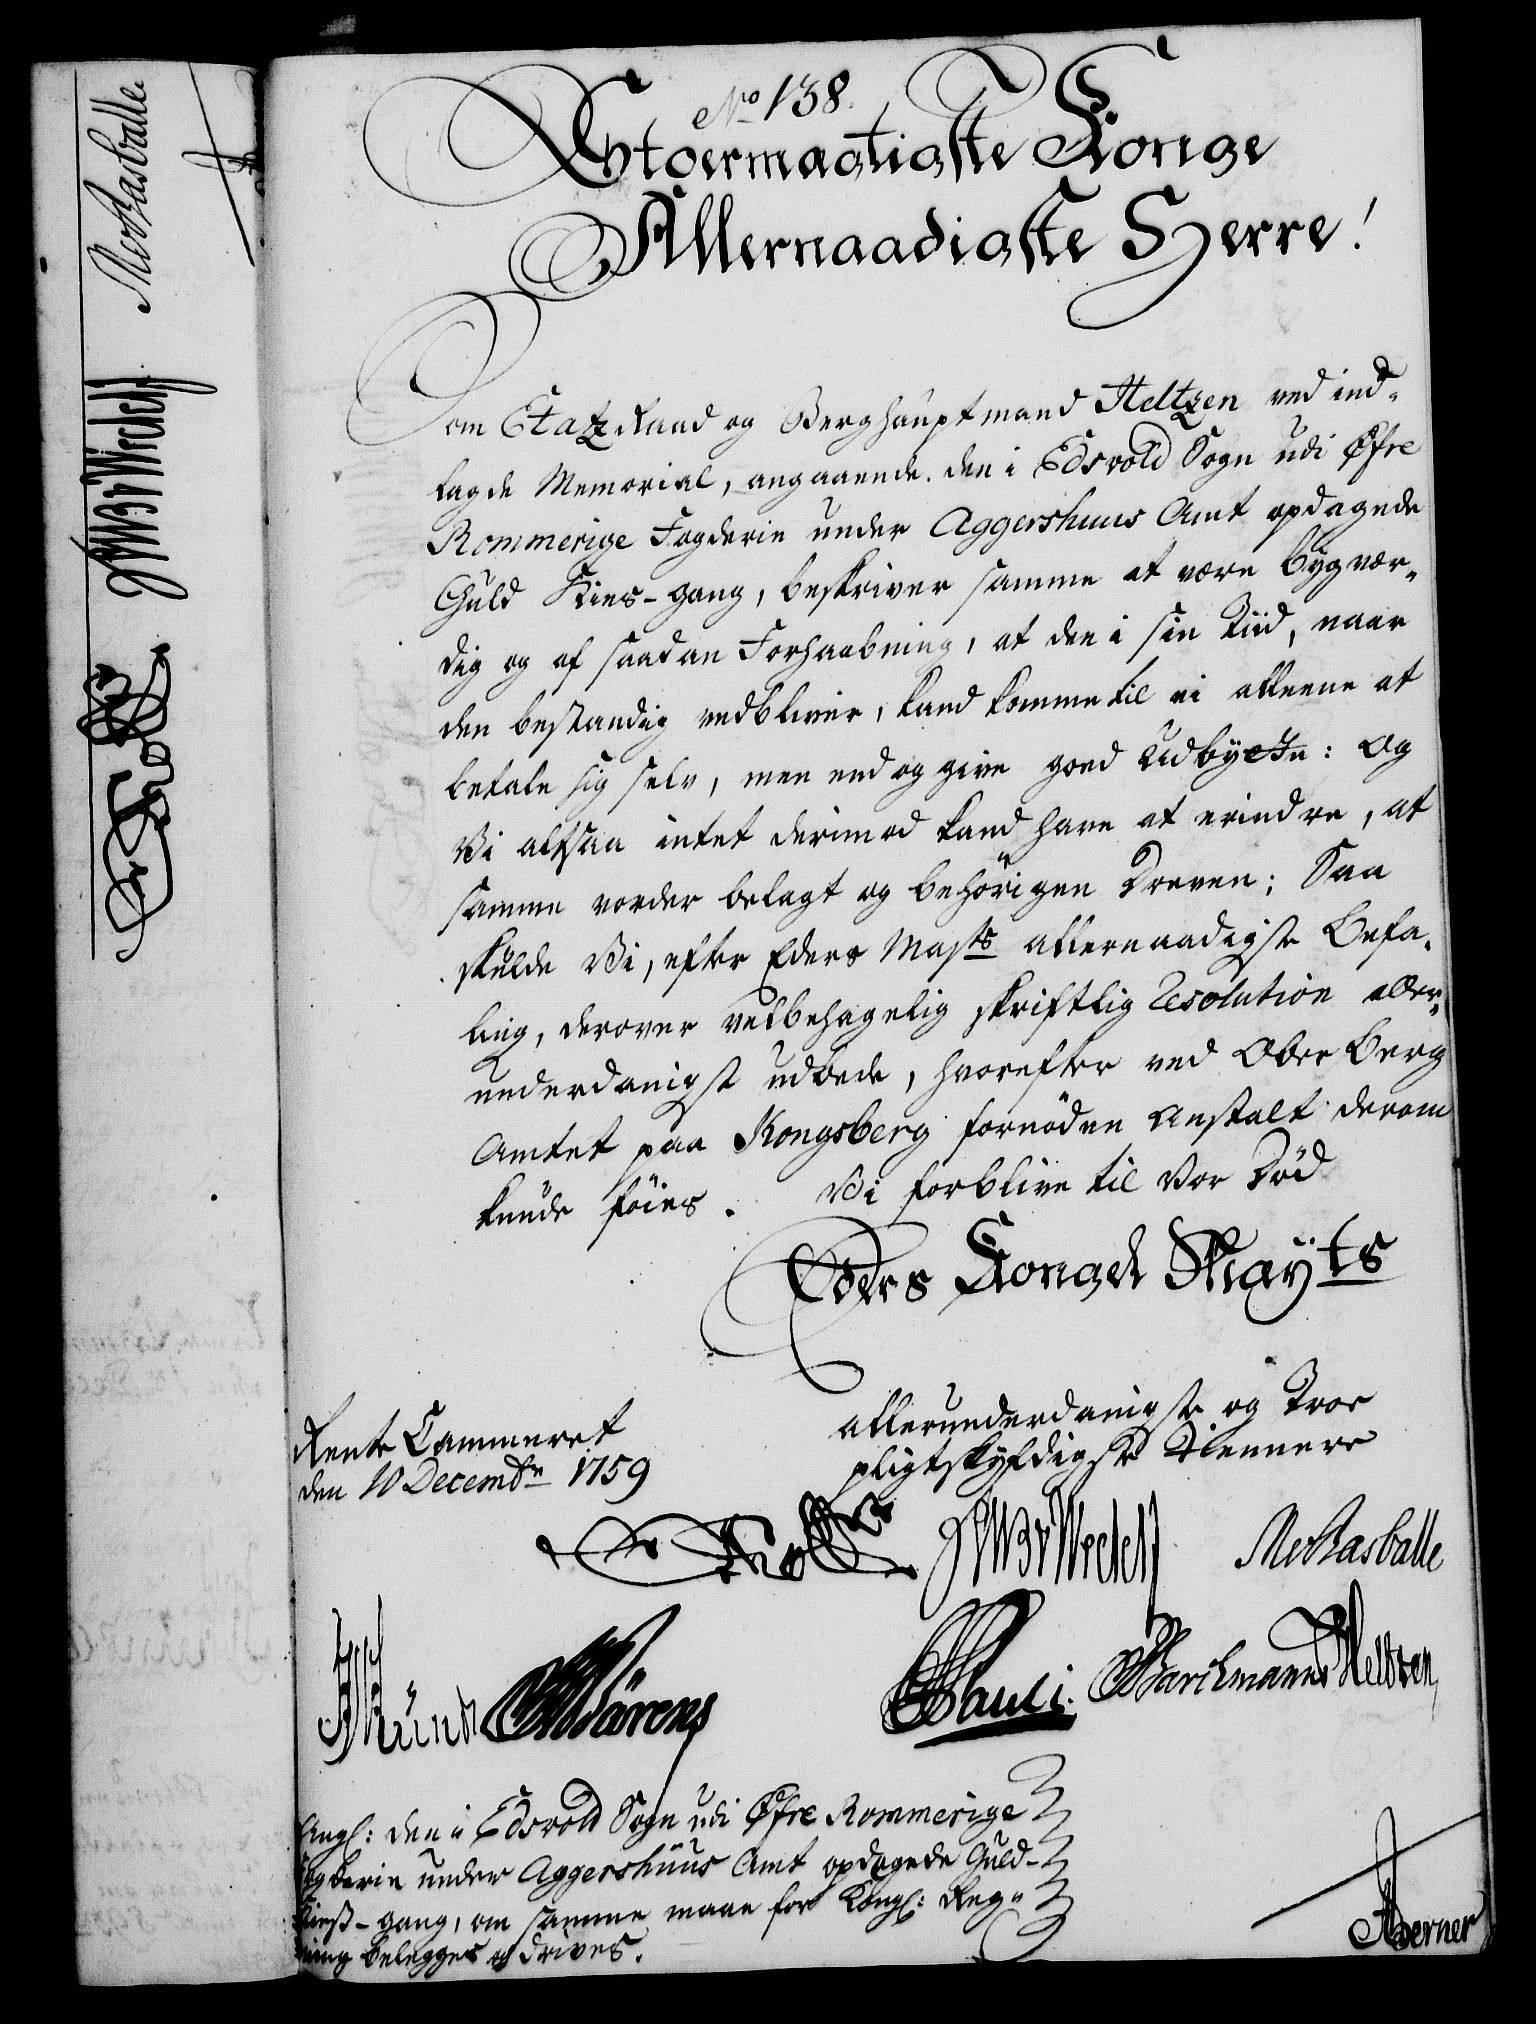 No 138.
Stoermægtigste Konge
Allernaadigste Herre!
Som Etatz Raad og Berghauptmand Heltzen ved ind-
tagde Memorial, angaaende den i Edsvold Sogn udi Øfre
Rommerige Fogderie under Aggershuus Amt opdagede
Guld Kies-gang, beskriver samme at være bygvær-
dig og af saadan Forhaabning, at den i sin Tiid, naar
den bestandig vedbliver, kand komme til ei alleene at
betale sig selv, men end og give goed Udbytte: Og
Vi altsaa intet derimod kand have at erindre, at
samme vorder belagt og behörigen Dreven; Saa
skulde Vi, efter Eders Majts allernaadigste Befa-
ling, derover velbehagelig skriftlig Resolution aller-
underdanigst udbede, hvorefter ved Ober Berg
Amtet paa Kongsberg fornöden Anstalt derom
kunde föies. Vi forblive til Vor Död
Eders Kongel Mayts
allerunderdanigste og Troe
pligtskyldigste Tiennere
Rente Cammeret
den 10 Decembr 1759
Holst JWBvWedel MeRasballe
Pauli Barchmann Heltzen
Angl: den i Edsvold Sogn udi Øfre Rommerige
Fogderie under Aggershuus Amt opdagede Guld-
Kiess-gang, om samme maae for Kongl: Reg-
ning belegges og drives.
Aberner
MeRasballe
JWBvWedel
Holst